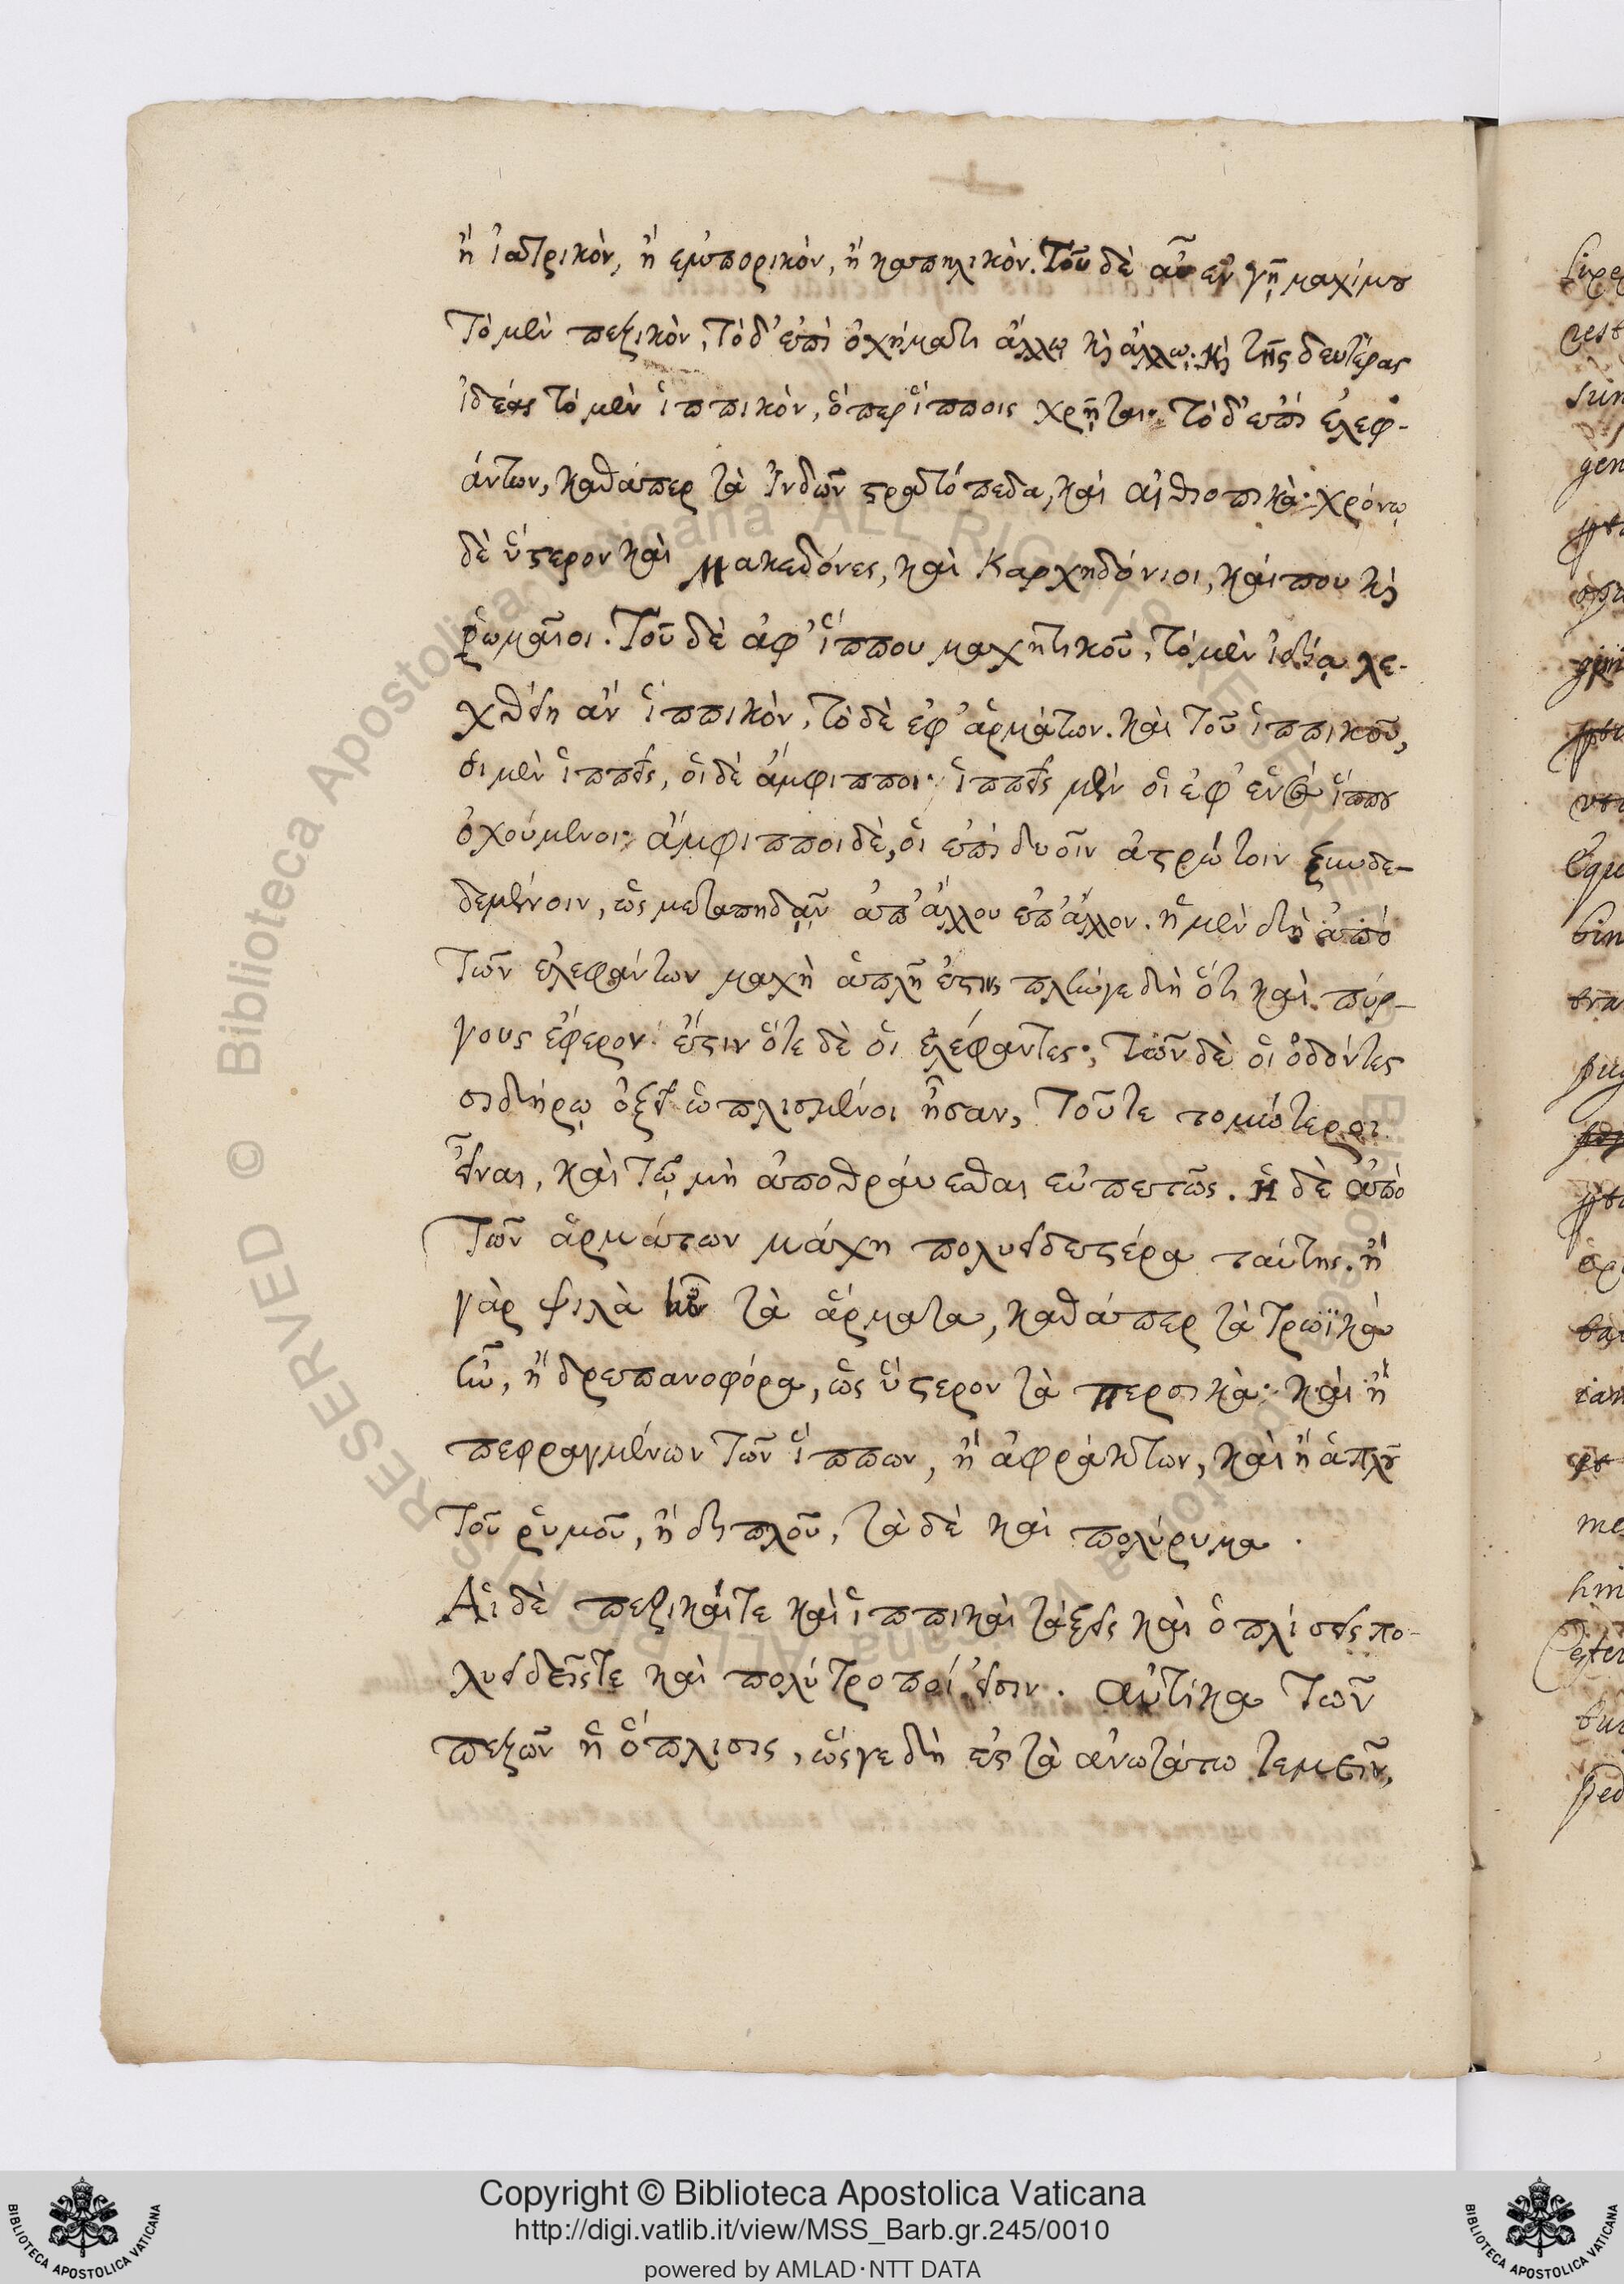 ἢ ἰατρικὸν, ἢ ἐμπορικὸν, ἢ καπηλικὸν. Τοῦ δὲ αὖ ἐν γῇ μαχίμου
τὸ μὲν πεζικὸν, τὸ δ' ἐπὶ ὀχήματι ἄλλῳ καὶ ἄλλῳ· καὶ τῆς δευτέρας
ἰδέας τὸ μὲν ἱππικὸν, ὅπερ ἵπποις χρῆται· τὸ δ' ἐπὶ ἐλεφ-
άντων, καθάπερ τὰ Ἰνδῶν στρατόπεδα, καὶ αἰθιοπικὰ· χρόνῳ
δὲ ὕστερον καὶ Μακεδόνες, καὶ Καρχηδόνιοι, καί που καὶ
ῥωμαῖοι. Τοῦ δὲ ἀφ' ἵππου μαχητικοῦ, τὸ μὲν ἰδίᾳ λε-
χθείη ἂν ἱππικὸν, τὸ δὲ ἐφ' ἁρμάτων. καὶ τοῦ ἱππικοῦ,
οἱ μὲν ἱππεῖς, οἱ δὲ ἄμφιπποι· ἱππεῖς μὲν οἱ ἐφ' ἑνὸς ἵππου
ὀχούμενοι· ἄμφιπποι δὲ, οἱ ἐπὶ δυοῖν ἀστρώτοιν ξυνδε-
δεμένοιν, ὡς μεταπηδᾷν ἀπ' ἄλλου ἐπ' ἄλλον. ἡ μὲν δὴ ἀπὸ
τῶν ἐλεφάντων μαχὴ ἁπλῆ ἐστιν πλήν γε δὴ ὅτι καὶ πύρ-
γους ἔφερον ἔστιν ὅτε δὲ οἱ ἐλέφαντες· τῶν δὲ οἱ ὀδόντες
σιδήρῳ ὀξεῖ ὡπλισμένοι ἦσαν, τοῦ τε τομώτεροι
εἶναι, καὶ τῷ μὴ ἀποθραύεσθαι εὐπετῶς. ἡ δὲ ἀπὸ
τῶν ἁρμάτων μάχη πολυειδεστέρα ταύτης. ἢ
γὰρ ψιλὰ ἦν τὰ ἅρματα, καθάπερ τὰ Τρωϊκὰ
ἦν, ἢ δρεπανοφόρα, ὡς ὕστερον τὰ περσικὰ· καὶ ἢ
πεφραγμένων τῶν ἵππων, ἢ ἀφράκτων, καὶ ἢ ἁπλοῦ
τοῦ ῥυμοῦ, ἢ διπλοῦ, τὰ δὲ καὶ πολύρυμα.
Αἱ δὲ πεζικαί τε καὶ ἱππικαὶ τάξεις καὶ ὁπλίσεις πο-
λυειδεῖς τε καὶ πολύτροποί εἰσιν. αὐτίκα τῶν
πεζῶν ἡ ὅπλισις, ὥς γε δὴ ἐς τὰ ἀνωτάτω τεμεῖν,
Copyright © Biblioteca Apostolica Vaticana
http://digi.vatlib.it/view/MSS_Barb.gr.245/0010
powered by AMLAD·NTT DATA
BIBLIOTECA APOSTOLICA VATICANA
BIBLIOTECA APOSTOLICA VATICANA